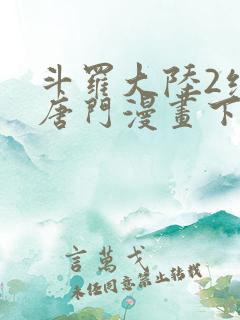 斗羅大陸2
唐門漫畫下
言萬戈
未經同意禁止轉載